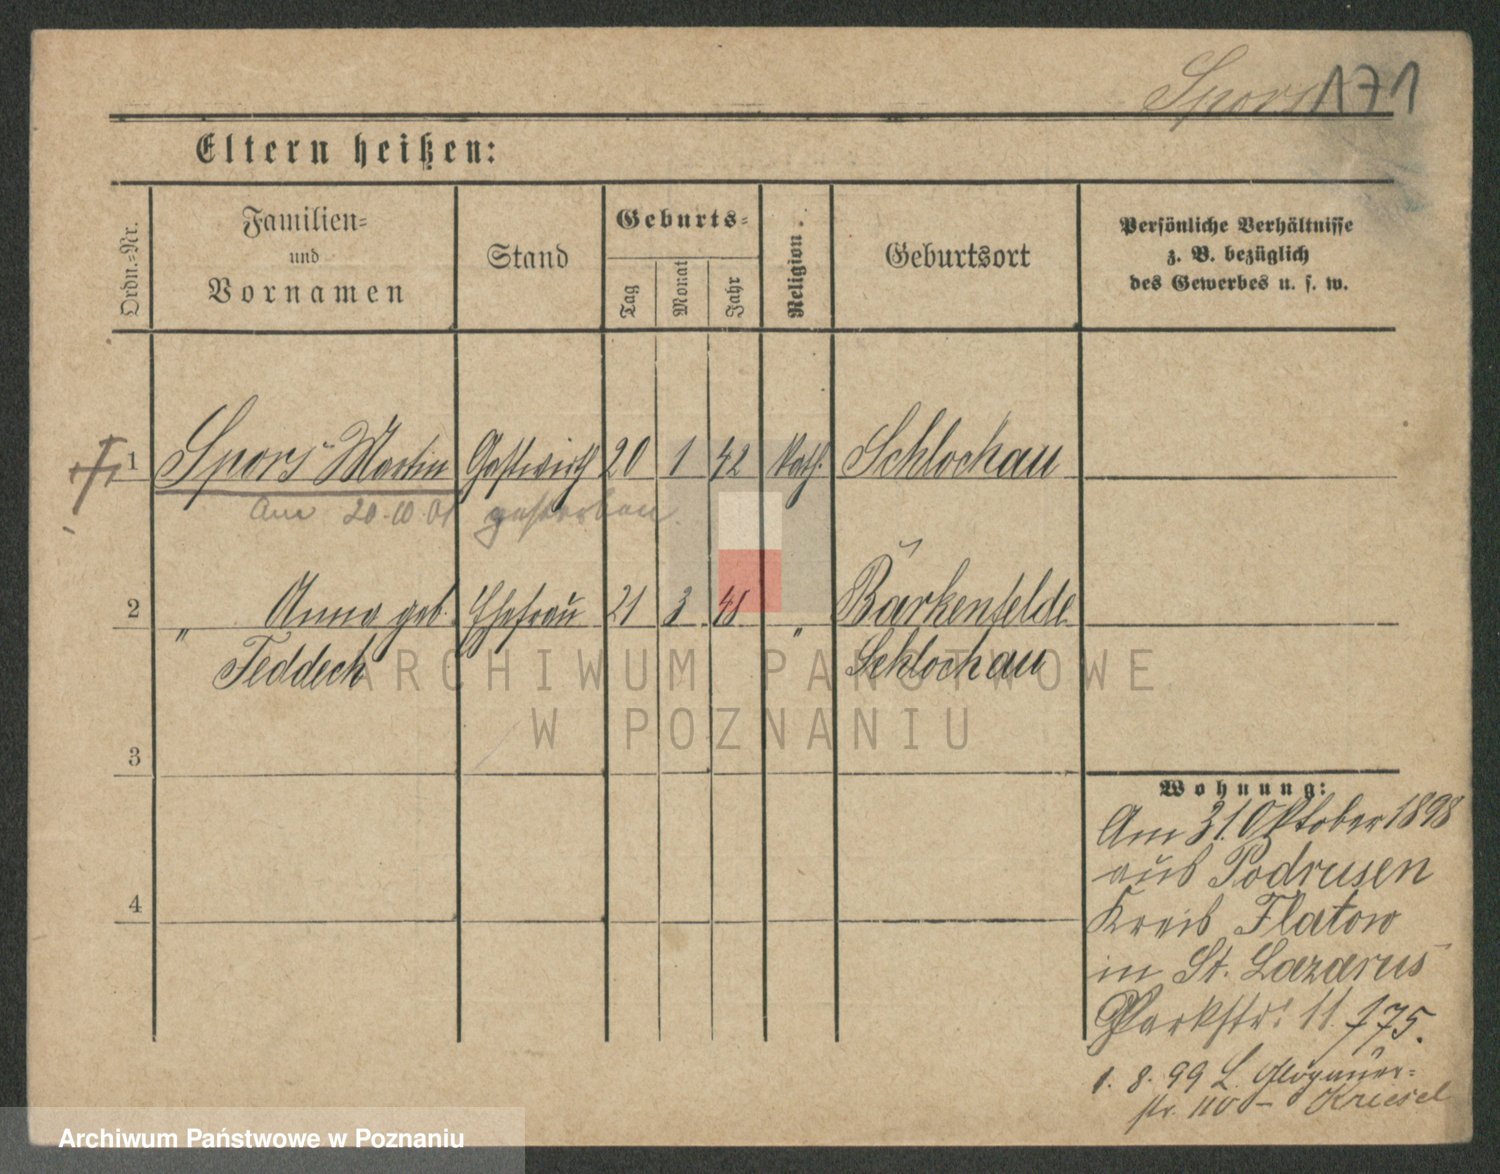 Spors 171
Eltern heißen:
Ordn.-Nr.
Familien-
und
Vornamen
Stand
Geburts-
Tag
Monat
Jahr
Religion.
Geburtsort
Persönliche Verhältnisse
z. B. bezüglich
des Gewerbes u. s. w.
1 Spors Martin Gastwirth 20 1 42 kath. Schlochau
Am 20.10.01 gestorben.
2 " Anna geb. Ehefrau 21 3 48 " Bärkenfelde
Teddeck Schlochau
ARCHIWUM PAŃSTWOWE
W POZNANIU
3
Wohnung:
Am 31. Oktober 1898
aus Podrusen
4 Kreis Flatow
in St. Lazarus
Parkstr. 11. 175.
1. 8. 99 L. Glogauer-
str. 110 - Kriesel
Archiwum Państwowe w Poznaniu